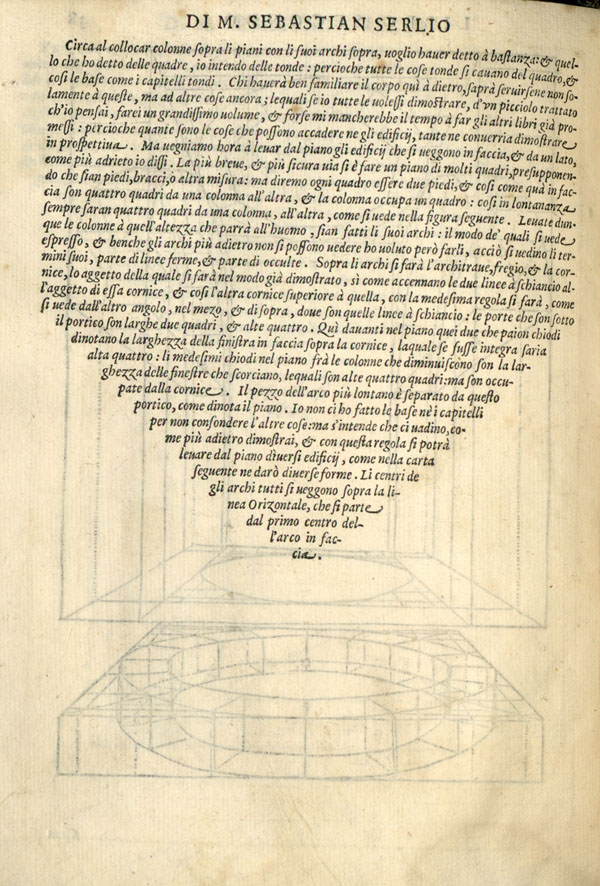 DI M. SEBASTIAN SERLIO
Circa al collocar colonne sopra li piani con li suoi archi sopra, uoglio hauer detto à bastanza: & quel-
lo che ho detto delle quadre, io intendo delle tonde: percioche tutte le cose tonde si cauano del quadro, &
cosi le base come i capitelli tondi. Chi hauerà ben familiare il corpo quà à dietro, saprà seruirsene non so-
lamente à queste, ma ad altre cose ancora; lequali se io tutte le uolessi dimostrare, d'un picciolo trattato
ch'io pensai, farei un grandissimo uolume, & forse mi mancherebbe il tempo à far gli altri libri già pro-
messi: percioche quante sono le cose che possono accadere ne gli edificij, tante ne conuerria dimostrare
in prospettiua. Ma uegniamo hora à leuar dal piano gli edificij che si ueggono in faccia, & da un lato,
come più adrieto io dissi. La più breue, & più sicura uia si è fare un piano di molti quadri, presupponen-
do che sian piedi, bracci, o altra misura: ma diremo ogni quadro essere due piedi, & cosi come quà in fac-
cia son quattro quadri da una colonna all'altra, & la colonna occupa un quadro: cosi in lontananza
sempre saran quattro quadri da una colonna, all'altra, come si uede nella figura seguente. Leuate dun-
que le colonne à quell'altezza che parrà all'huomo, sian fatti li suoi archi: il modo de' quali si uede
espresso, & benche gli archi più adietro non si possono uedere ho uoluto però farli, acciò si uedino li ter-
mini suoi, parte di linee ferme, & parte di occulte. Sopra li archi si farà l'architraue, fregio, & la cor-
nice, lo aggetto della quale si farà nel modo già dimostrato, sì come accennano le due linee à schiancio al-
l'aggetto di essa cornice, & cosi l'altra cornice superiore à quella, con la medesima regola si farà, come
si uede dall'altro angolo, nel mezo, & di sopra, doue son quelle linee à schiancio: le porte che son sotto
il portico son larghe due quadri, & alte quattro. Quì dauanti nel piano quei due che paion chiodi
dinotano la larghezza della finistra in faccia sopra la cornice, laquale se fusse integra saria
alta quattro: li medesimi chiodi nel piano frà le colonne che diminuiscono son la lar-
ghezza delle finestre che scorciano, lequali son alte quattro quadri: ma son occu-
pate dalla cornice. Il pezzo dell'arco più lontano è separato da questo
portico, come dinota il piano. Io non ci ho fatto le base nè i capitelli
per non consondere l'altre cose: ma s'intende che ci uadino, co-
me più adietro dimostrai, & con questa regola si potrà
leuare dal piano diuersi edificij, come nella carta
seguente ne darò diuerse forme. Li centri de
gli archi tutti si ueggono sopra la li-
nea Orizontale, che si parte
dal primo centro del-
l'arco in fac-
cia.